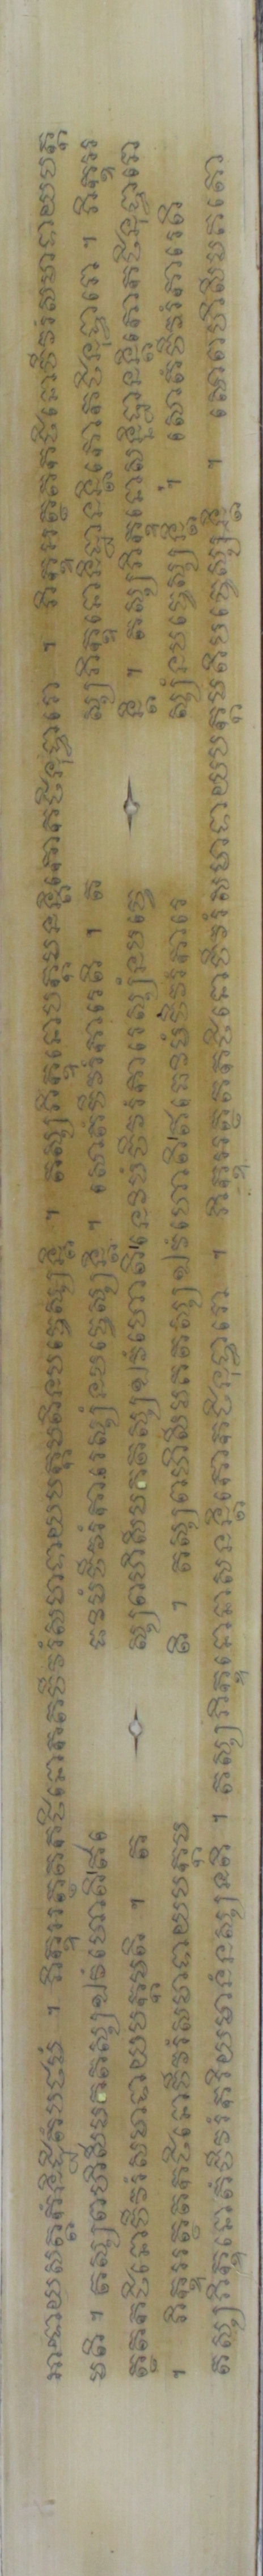 អាទាយសត្តកំនិដ្ឋិតំបឋមំ ។ ភិក្ខុអត្ថតកឋិនោកតចីវរំសមាទាយបក្កមតិនបច្ចេស្សន្តិ ។ តស្សភិក្ខុនោបក្កមនន្តិកោកឋិនុទ្ធារោ ។ ភិក្ខុអត្ថតកឋិនោចីវរំសមាទាយបក្ក
មតិ ។ តស្សពហិសីមគតស្សឯវំហោតិឥធេ វមំចីវរំការេស្សំនបច្ចេស្សន្តិ ។ សោតំចីវរំការេតិ ។ ត ស្សភិក្ខុនោនិដ្ឋានន្តិកោកឋិនុទ្ធារោ ។ ភិក្ខុអ
ត្ថតកឋិនោចីវរំសមាទាយបក្កមតិ ។ ត ស្សពហិសីមគតស្សឯវំហោតិនេវមំចីវរំការេស្សំនបច្ចេ ន្តិ ។ តស្សភិក្ខុនោសន្និដ្ឋានន្តិកោកឋិនុទ្ធារោ
។ ភិក្ខុអត្ថតកឋិនោចីវរំសមាទាយបក្កម តិ ។ តស្សពហិសីមគតស្សឯវំហោតិឥធេវមំចីវរំការេ ស្សំនបច្ចេស្សន្តិ ។ សោតំចីវរំការេតិ
តស្សភិក្ខុនោតំចីវរំកវិយមានំនស្សនតិ ។ តស្សភិក្ខុនោនាសនន្តិកោកឋិនុទ្ធារោ ។ ភិក្ខុអត្ថតកឋិនោចីវរំសមាទាយបក្កមតិបច្ចេស្សន្តិ ។ សោពហិសីមគតោ